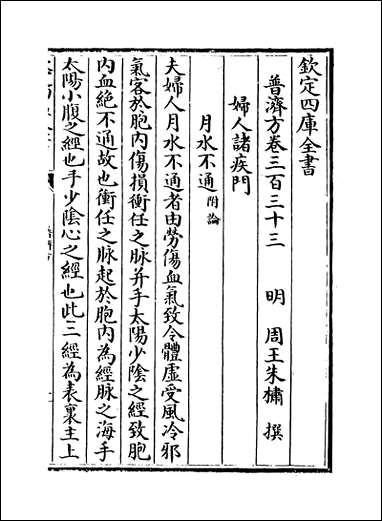 欽定四庫全書
普濟方卷三百三十三
明 周王朱橚 撰
婦人諸疾門
月水不通附論
夫婦人月水不通者由勞傷血氣致令體虛受風冷邪
氣客於胞内傷損衝任之脉并手太陽少陰之經致胞
内血絶不通故也衝任之脉起於胞内為經脉之海手
太陽小腹之經也手少陰心之經也此三經為表裏主上